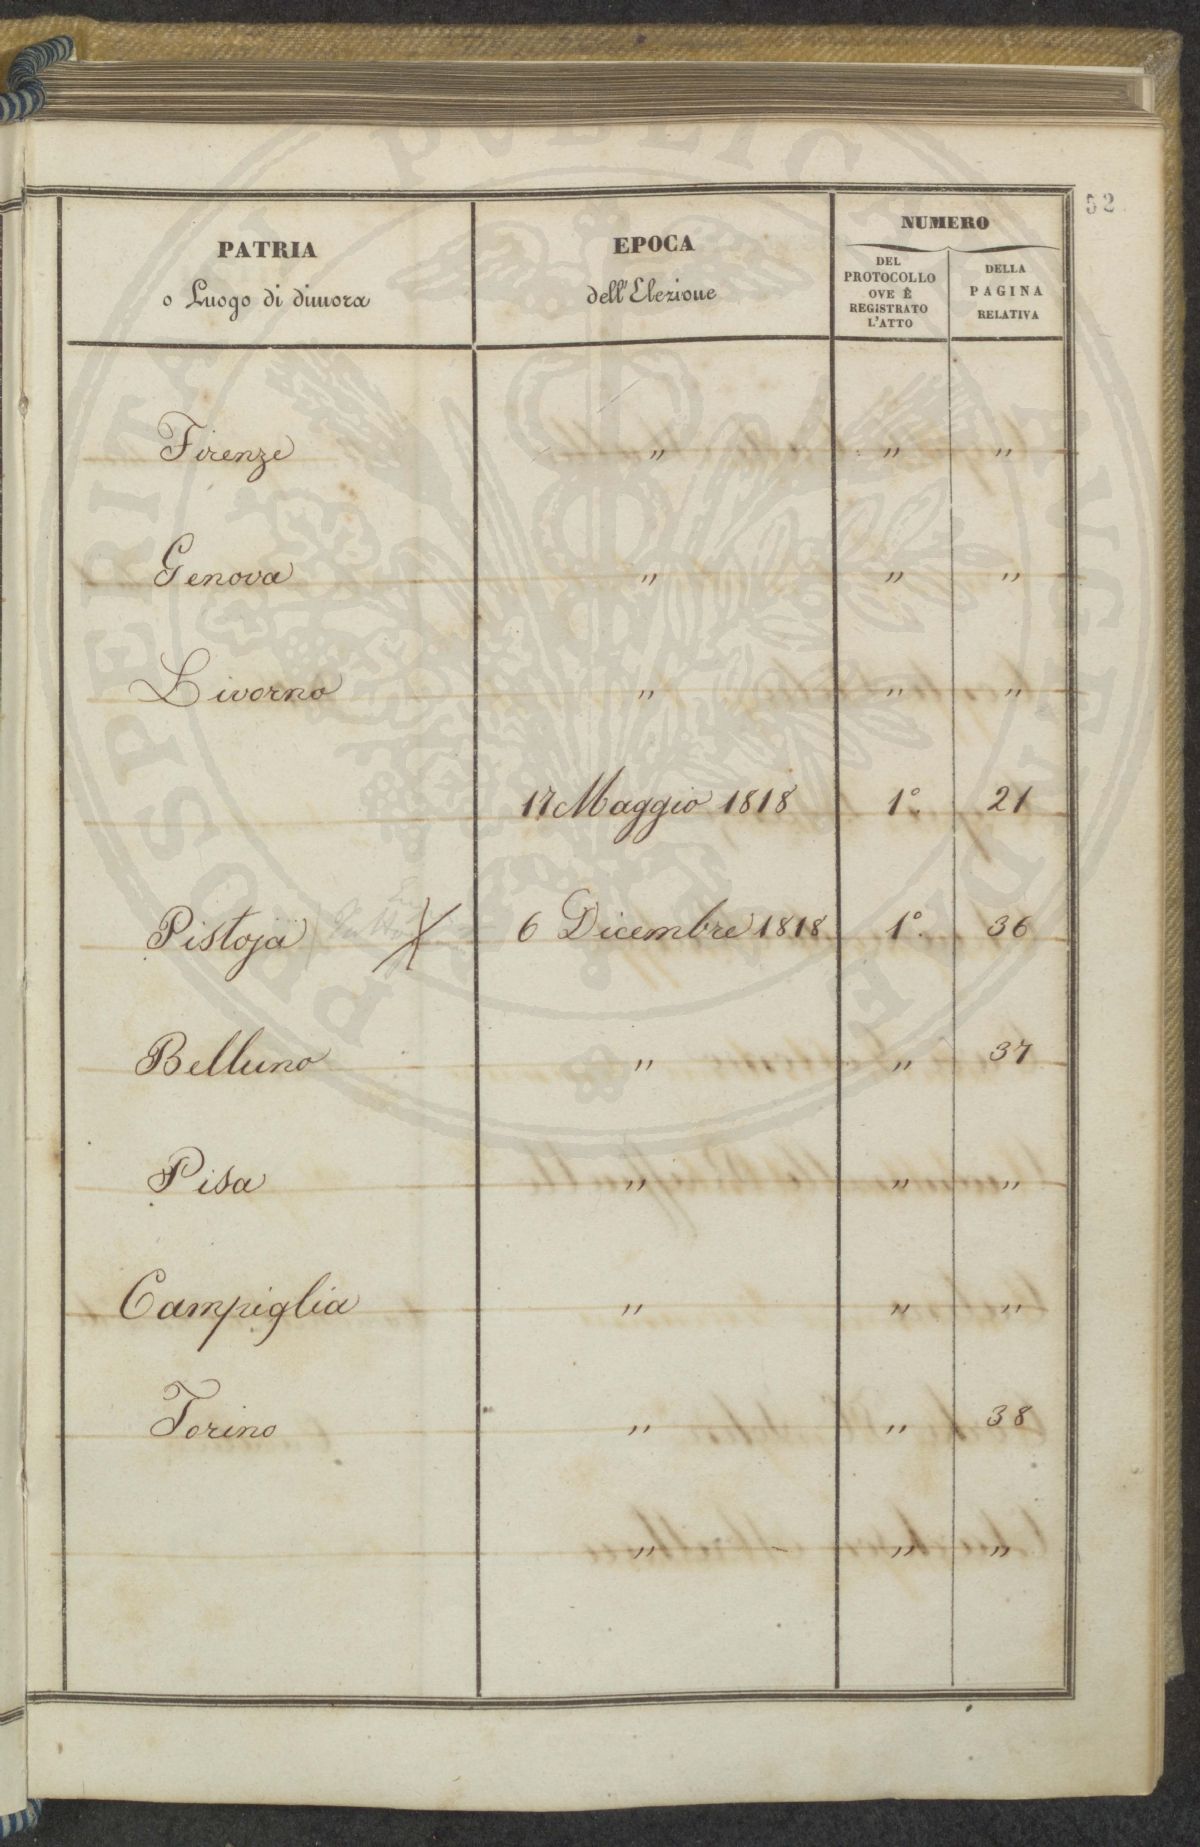 52
PATRIA
o Luogo di dimora
EPOCA
dell'Elezione
NUMERO
DEL
PROTOCOLLO
OVE È
REGISTRATO
L'ATTO
DELLA
PAGINA
RELATIVA
Firenze " " "
Genova " " "
Livorno " " "
17 Maggio 1818 1° 21
Pistoja 6 Dicembre 1818 1° 36
Belluno " " 37
Pisa " " "
Campiglia " " "
Torino " " 38
" " "
PROSPERITATI PVBLICAE AVGENDAE